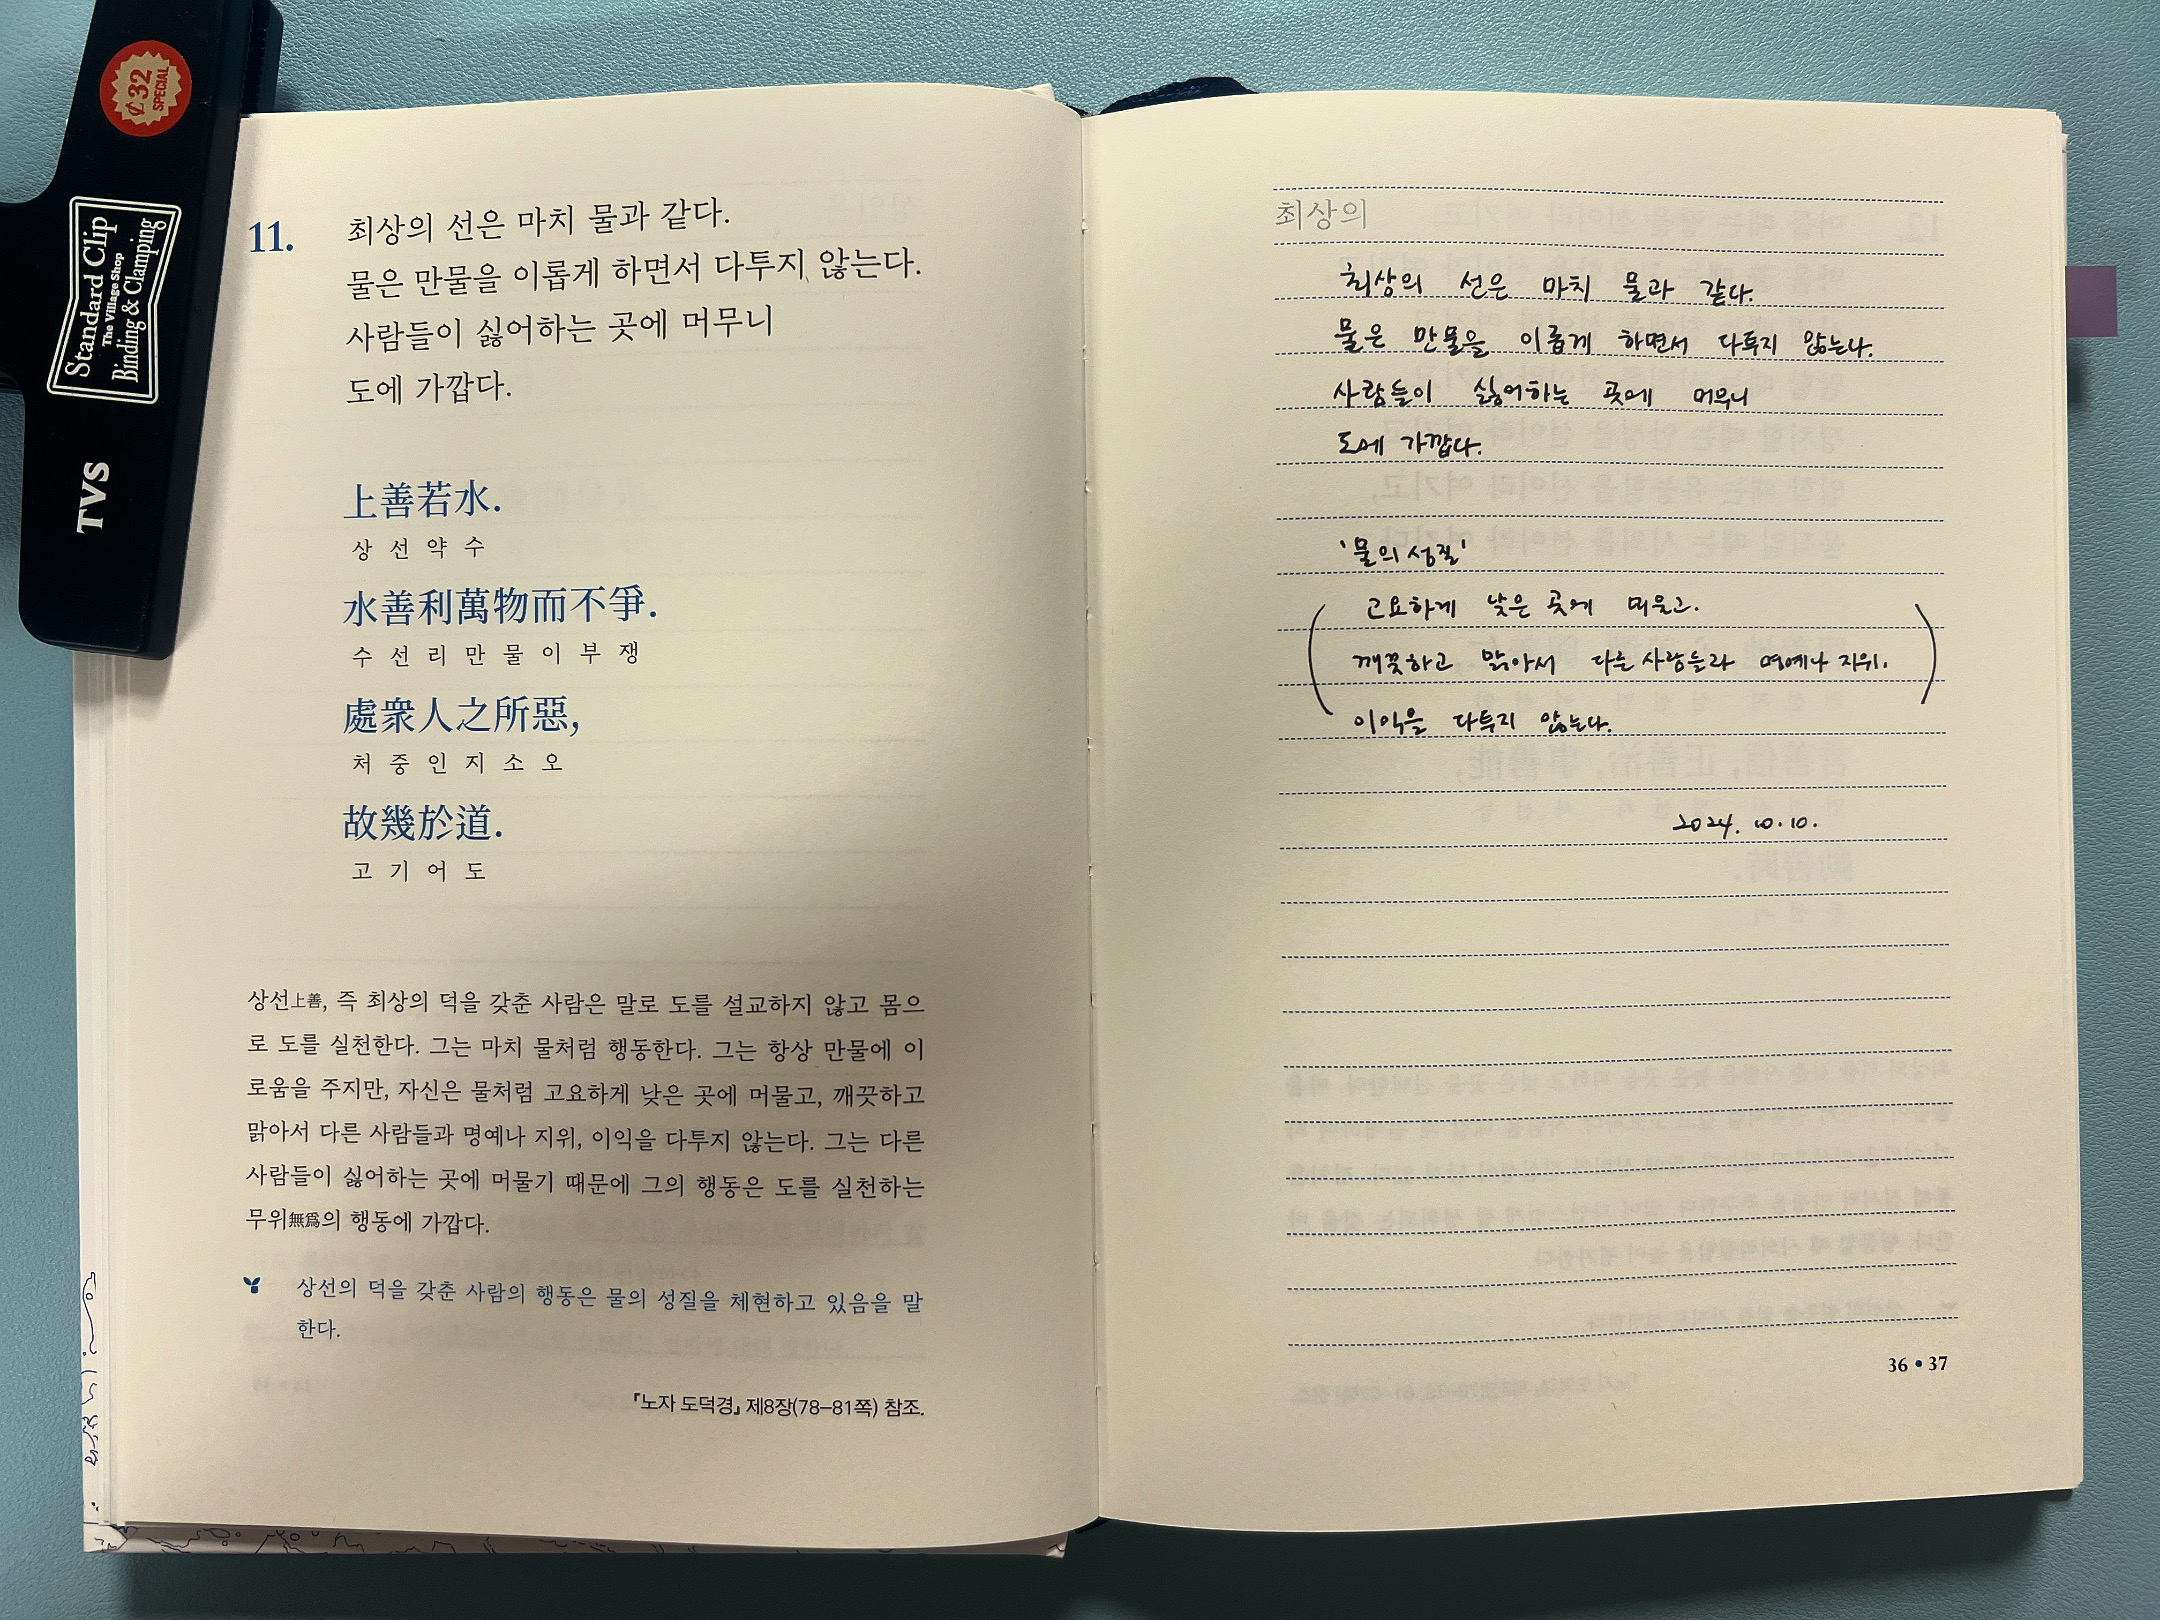 ₡32
SPECIAL
Standard Clip
The Village Shop
Binding & Clamping
TVS
11.
최상의 선은 마치 물과 같다.
물은 만물을 이롭게 하면서 다투지 않는다.
사람들이 싫어하는 곳에 머무니
도에 가깝다.
上善若水.
상 선 약 수
水善利萬物而不爭.
수 선 리 만 물 이 부 쟁
處衆人之所惡,
처 중 인 지 소 오
故幾於道.
고 기 어 도
상선上善, 즉 최상의 덕을 갖춘 사람은 말로 도를 설교하지 않고 몸으
로 도를 실천한다. 그는 마치 물처럼 행동한다. 그는 항상 만물에 이
로움을 주지만, 자신은 물처럼 고요하게 낮은 곳에 머물고, 깨끗하고
맑아서 다른 사람들과 명예나 지위, 이익을 다투지 않는다. 그는 다른
사람들이 싫어하는 곳에 머물기 때문에 그의 행동은 도를 실천하는
무위無爲의 행동에 가깝다.
상선의 덕을 갖춘 사람의 행동은 물의 성질을 체현하고 있음을 말
한다.
『노자 도덕경』 제8장(78–81쪽) 참조.
최상의
최상의 선은 마치 물과 같다.
물은 만물을 이롭게 하면서 다투지 않는다.
사람들이 싫어하는 곳에 머무니
도에 가깝다.
'물의 성질'
고요하게 낮은 곳에 머물고.
깨끗하고 맑아서 다른 사람들과 명예나 지위.
이익을 다투지 않는다.
2024. 10. 10.
36 • 37